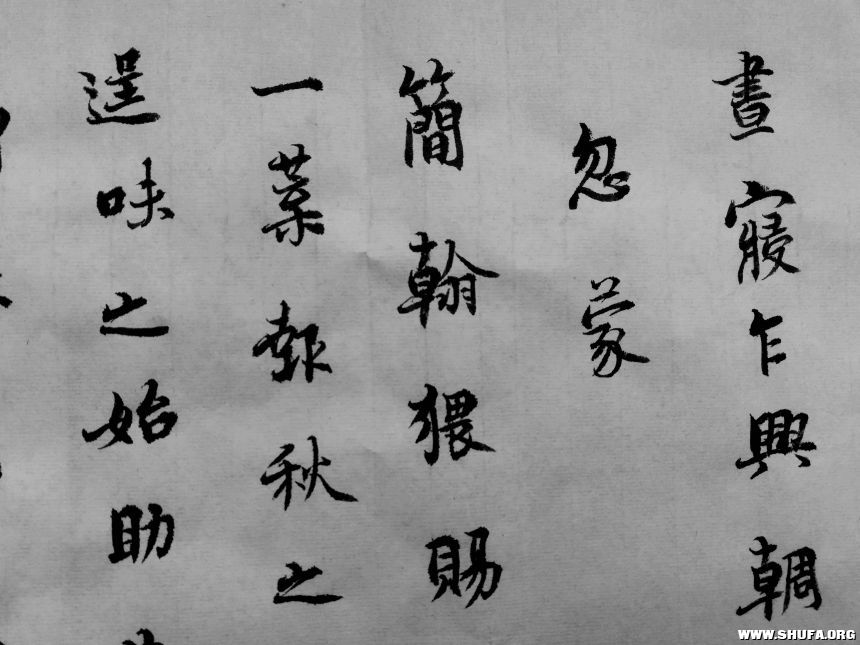 晝寢乍興輖
忽蒙
簡翰猥賜
一葉報秋之
逞味之始助
WWW.SHUFA.ORG